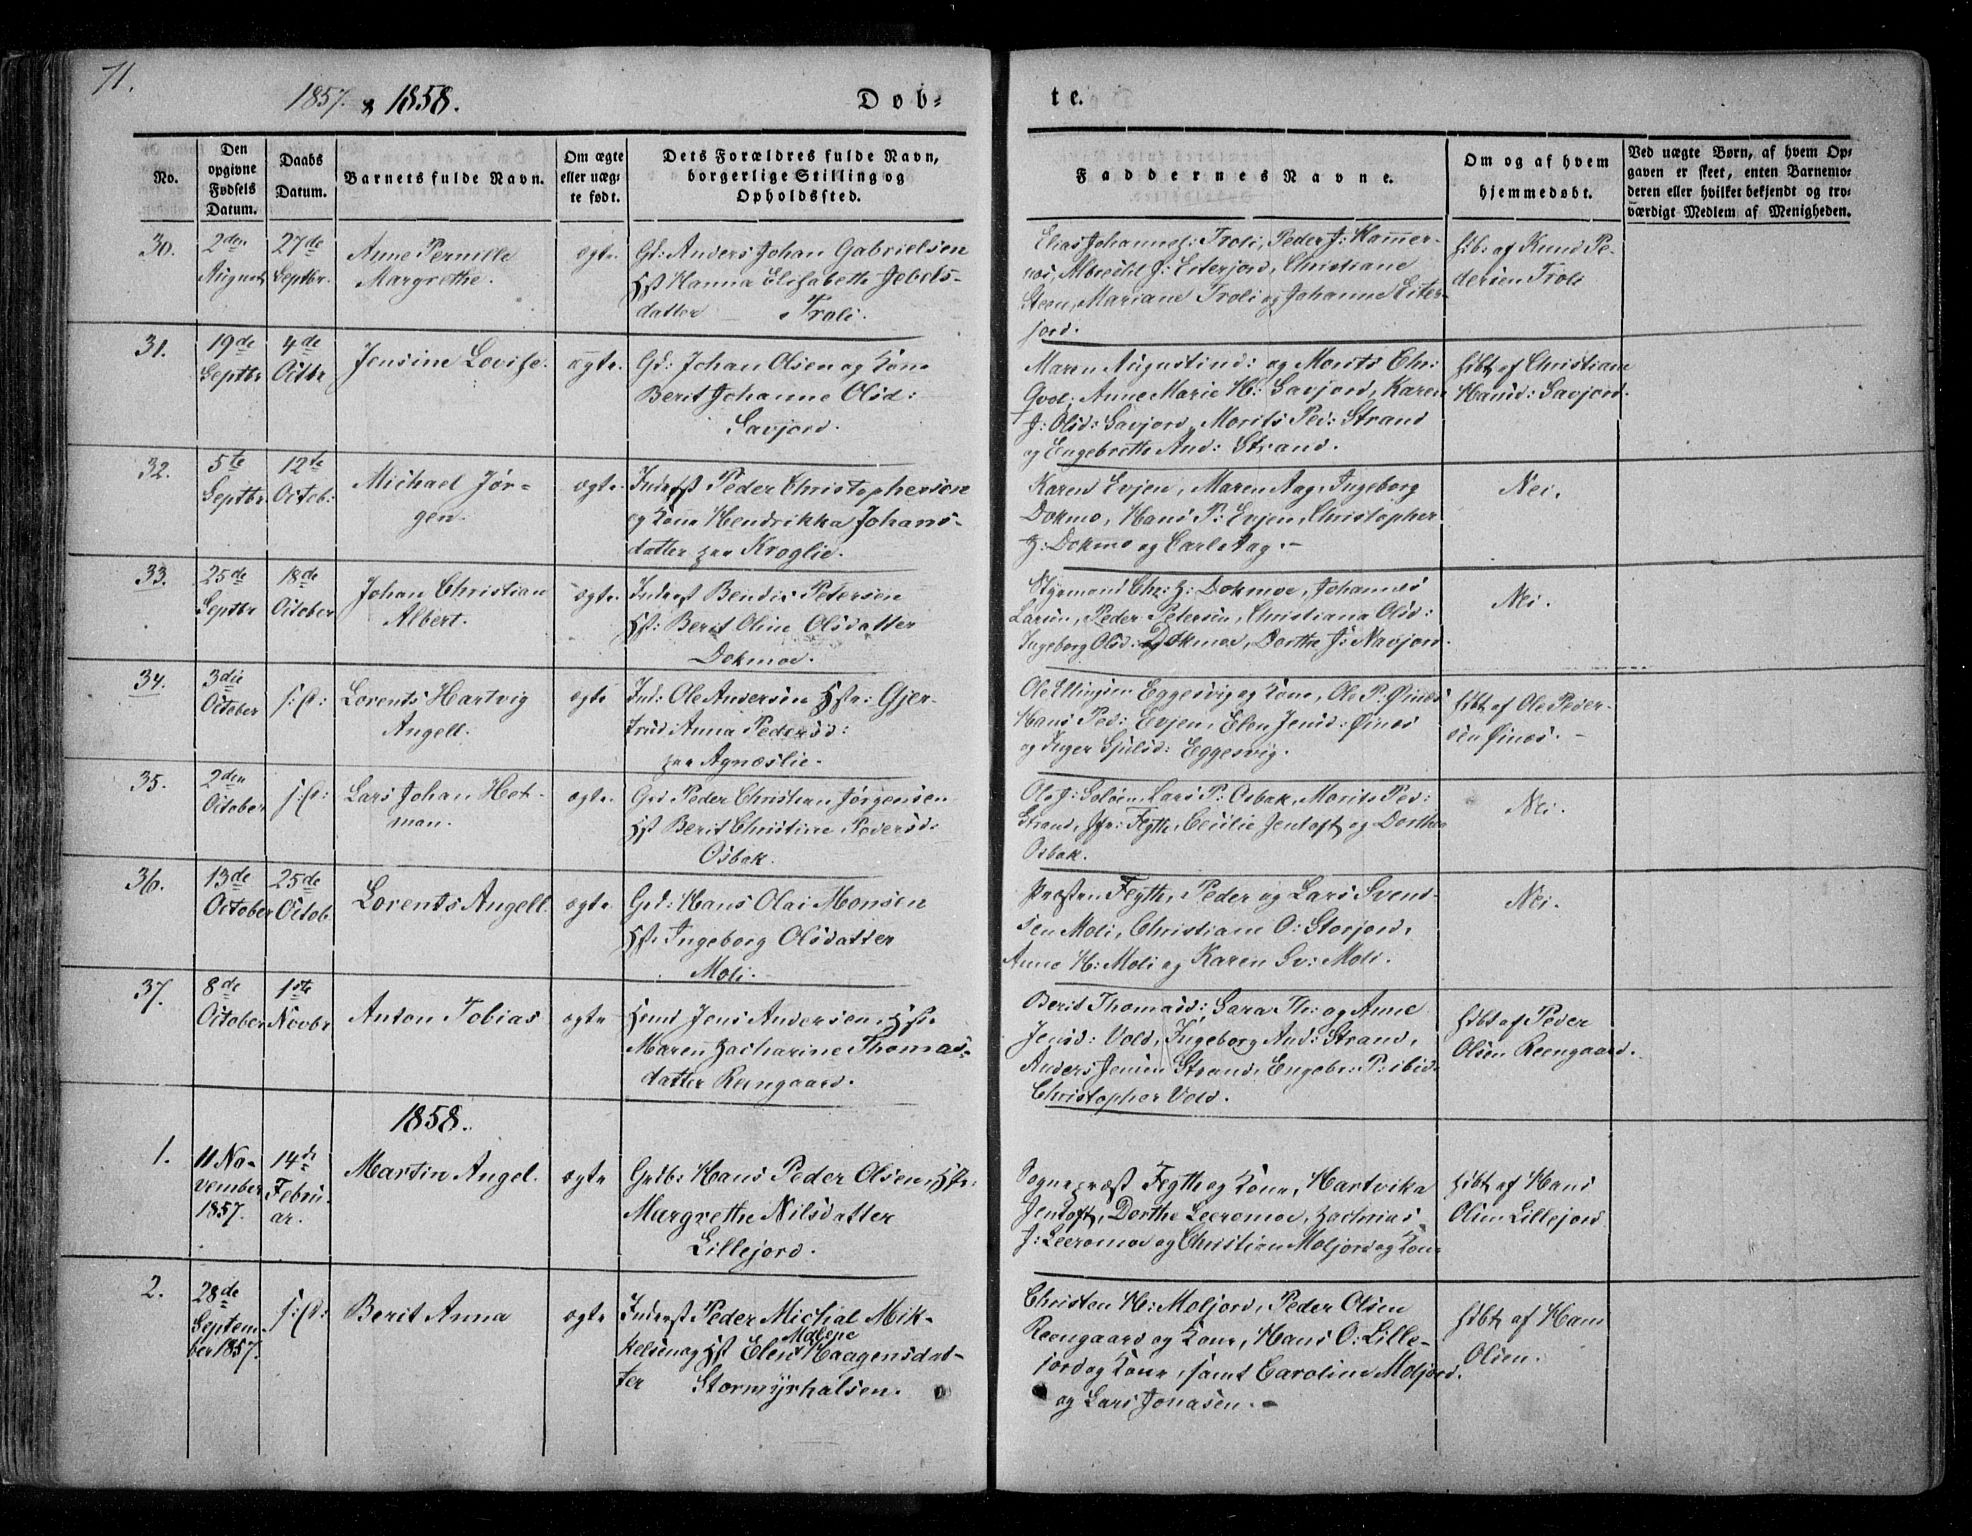 71.
1857. & 1858.
Døb-
te.
No.
Den
opgivne
Fødsels
Datum.
Daabs
Datum.
Barnets fulde Navn.
Om ægte
eller uæg-
te født.
Dets Forældres fulde Navn,
borgerlige Stilling og
Opholdssted.
Faddernes Navne.
Om og af hvem
hjemmedøbt.
Ved uægte Børn, af hvem Op-
gaven er skeet, enten Barnemo-
deren eller hvilket bekjendt og tro-
værdigt Medlem af Menigheden.
30.
2den
August
27de
Septbr.
Anne Pernille
Margrethe.
ægte.
Gd: Anders Johan Gabrielsen
Hst Hanna Elisabeth Jebels-
datter Troli.
Elias Johannes: Troli, Peder J: Hammer-
næs, Albrecht J: Eiterjord, Christiane
Steen, Mariane Troli og Johanne Eiter-
jord.
hib: af Knud Pe-
dersen Troli
31.
19de
Septbr
4de
Octbr
Jensine Lovise.
ægte.
Gd: Johan Olsen og Kone
Berit Johanne Olsd:
Savjord.
Maren Augustind: og Morits Chr:
Qvol; Anne Marie H: Savjord, Karen
J: Olsd: Savjord, Morits Ped: Strand
og Engebrethe And: Strand.
hibt af Christiane
Hansd: Savjord.
32.
5te
Septbr
12te
Octob:
Michael Jør-
gen.
ægte.
Inderst Peder Christophersen
og Kone Hendrikka Johans-
datter paa Kroglie.
Karen Evjen, Maren Aag, Ingeborg
Dokmo, Hans P: Evjen, Christopher
Z: Dokmo og Carl Aag. -
Nei.
33.
25de
Septbr
18de
October
Johan Christian
Albert.
ægte.
Inderst Bendix Petersen
Hst: Berit Oline Olsdatter
Dokmoe.
Styrmand Chr: Z: Dokmoe, Johannes
Larsen, Peder Petersen, Christiana Olsd:
Ingeborg Olsd: Dokmoe, Dorthe J: Navjord.
Nei.
34.
3die
October
s: D:
Lorents Hartvig
Angell.
ægte
Ind: Ole Andersen Hstr: Gjer-
trud Anna Pedersd:
paa Agnæslie.
Ole Ellingsen Eggesvig og Kone, Ole P: Øinæs
Hans Ped: Evjen, Elen Jensd: Øines
og Inger Sjulsd: Eggesvig.
hibt af Ole Peder-
sen Øines. -
35.
2den
October
s: D:
Lars Johan Het-
man.
ægte.
Grd Peder Christian Jørgensen
Hst Berit Christine Pedersd:
Osbak.
Ole J: Soløen, Lars P: Osbak, Morits Ped:
Strand, Jfr: Fegth, Cecilie Jentoft og Dorthea
Osbak.
Nei.
36.
13de
October
25de
Octob.
Lorents Angell.
ægte.
Grd: Hans Olai Monsen
Hst. Ingeborg Olsdatter
Moli.
Præsten Fegth, Peder og Lars Svend-
sen Moli, Christiane O: Storjord,
Anne H: Moli og Karen Sv: Moli.
Nei.
37.
8de
October
1ste
Novbr
Anton Tobias
ægte
Hmd Jens Andersen, Hst.
Maren Zacharine Thomas-
datter Reengaard.
Berit Thomasd: Sara Th: og Anne
Jensd: Vold, Ingeborg And: Strand,
Anders Jensen Strand, Engebr: P: ibid.
Christopher Vold.
hibt af Peder
Olsen Reengaard.
1858.
1.
11 No-
vember
1857.
14de
Febru-
ar.
Martin Angel.
ægte
Grdb: Hans Peder Olsen, Hstr:
Margrethe Nilsdatter
Lillejord.
Sognepræst Fegth og Kone, Hartvika
Jentoft, Dorthe Leeromoe, Zachrias
J: Leeromoe og Christian Moljord og Kone
hibt af Hans
Olsen Lillejord
2.
28de
Septem-
ber 1857.
s: D:
Berit Anna
ægte
Inderst Peder Michal Mik-
kelsen og Hst Elen Malene Haagensdat-
ter Stormyrhalsen.
Christen H: Moljord, Peder Olsen
Reengaard og Kone, Hans O: Lille-
jord og Kone, samt Caroline Moljord.
og Lars Jonasen. -
hibt af Hans
Olsen.